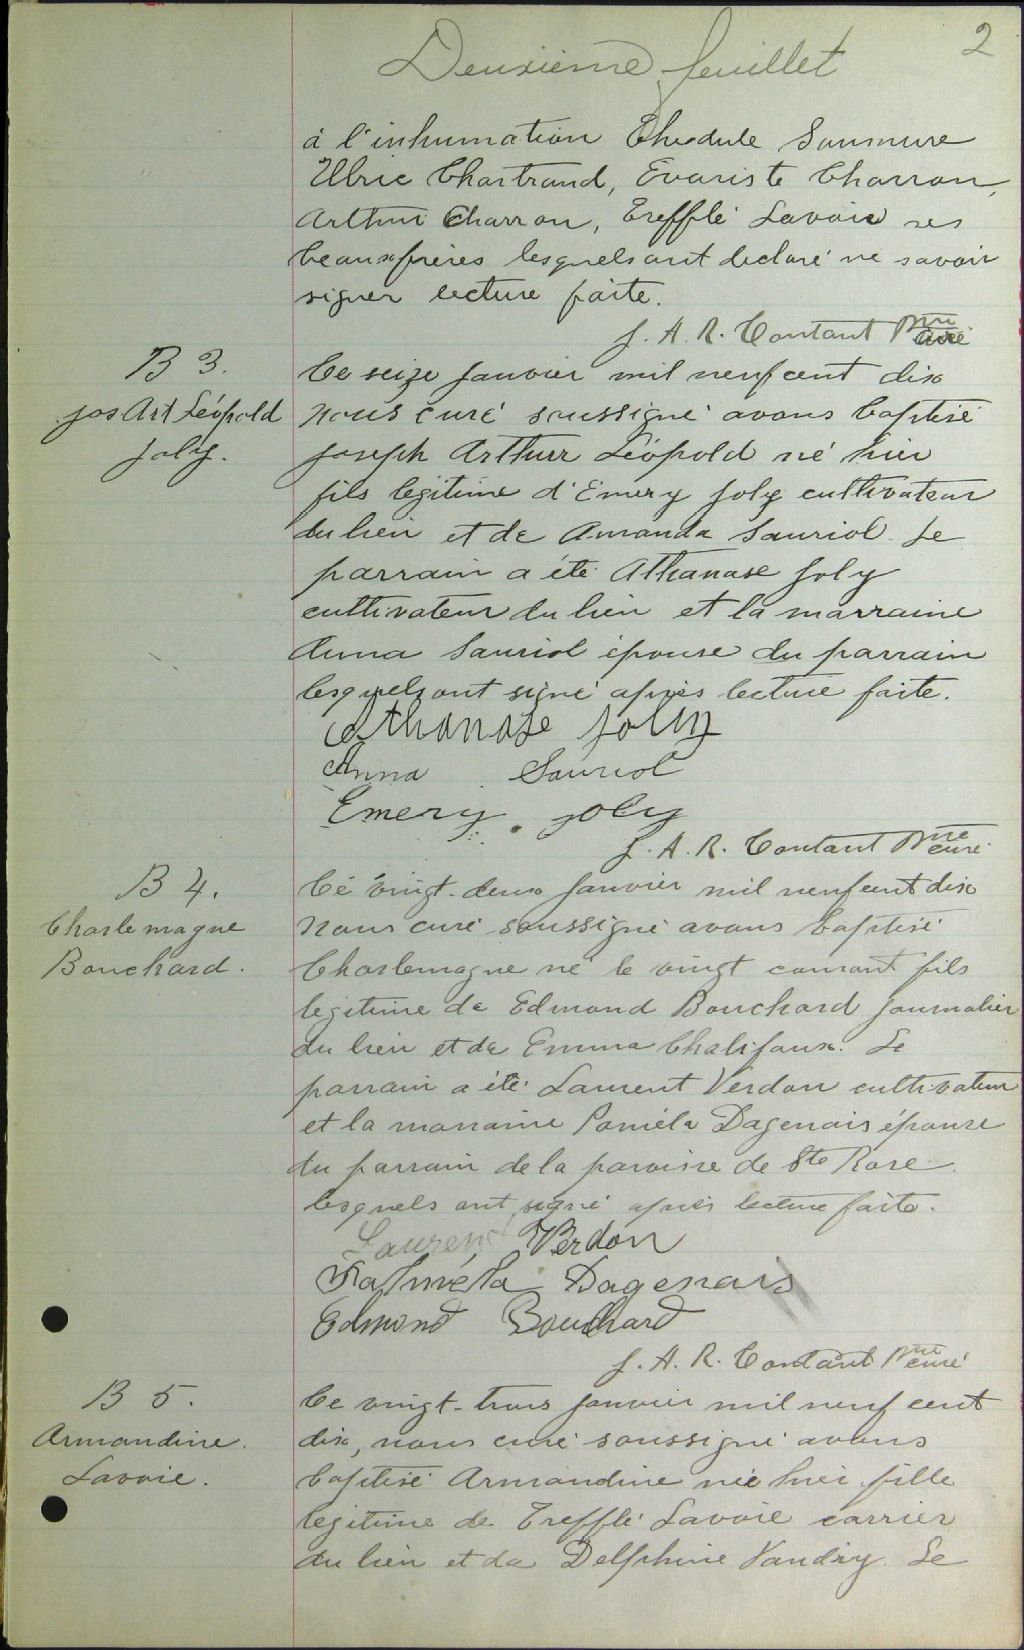 2
Deuxième feuillet
à l'inhumation Saumure
Ulric Chartrand, Evariste Charron,
Arthur Charron, Trefflé Lavoie ses
beauxfrères lesquels ont declaré ne savoir
signer lecture faite.
J. A. R. Contant Ptre curé
B 3.
Jos Art Léopold
Joly.
Ce seize Janvier mil neuf cent dix
nous curé soussigné avons baptisé
Joseph Arthur Léopold né hier
fils legitime d'Emery Joly cultivateur
du lieu et de Amanda Sauriol. Le
parrain a été Athanase Joly
cultivateur du lieu et la marraine
Anna Sauriol épouse du parrain
lesquels ont signé après lecture faite.
Athanase Joly
Anna Sauriol
Emery Joly
J. A. R. Contant Ptre curé
B 4.
Charlemagne
Bouchard.
Ce vingt-deux Janvier mil neuf cent dix
nous curé soussigné avons baptisé
Charlemagne né le vingt courant fils
legitime de Edmond Bouchard journalier
du lieu et de Emma Chalifoux. Le
parrain a été Laurent Verdon cultivateur
et la marraine Paméla Dagenais épouse
du parrain de la paroisse de Ste Rose
lesquels ont signé après lecture faite.
Laurent Verdon
Palméla Dagenais
Edmond Bouchard
J. A. R. Contant Ptre curé
B 5.
Armandine
Lavoie.
Ce vingt-trois Janvier mil neuf cent
dix, nous curé soussigné avons
baptisé Armandine née hier fille
legitime de Trefflé Lavoie carrier
du lieu et de Delphine Vandry. Le